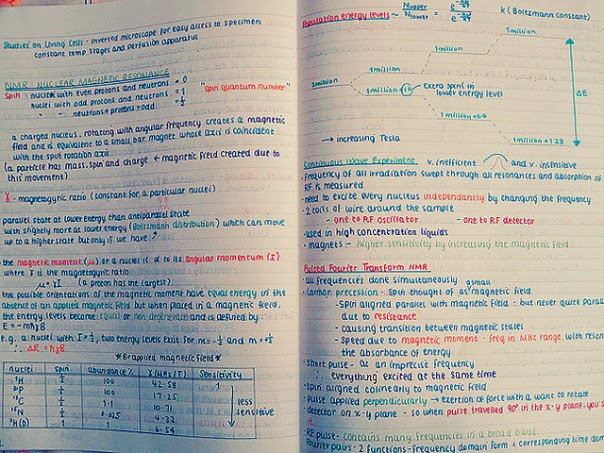 Studies on Living Cells - inverted microscope for easy access to specimen
constant temp stages and perfusion apparatus
NMR: NUCLEAR MAGNETIC RESONANCE
Spin: nuclei with even protons and neutrons = 0
nuclei with odd protons and neutrons = 1
" " neutrons + protons = odd = ½
"Spin quantum number"
a charged nucleus, rotating with angular frequency creates a magnetic
field and is equivalent to a small bar magnet whose axis is coincident
with the spin rotation axis
(a particle has mass, spin and charge + magnetic field created due to
this movement)
γ - magnetogyric ratio (constant for a particular nuclei)
parallel state at lower energy than antiparallel state
with slightly more at lower energy (Boltzmann distribution) which can move
up to a higher state but only if we have
• the magnetic moment (μ) of a nuclei is α to its angular momentum (I)
where γ is the magnetogyric ratio
μ = γI (a proton has the largest)
• the possible orientations of the magnetic moment have equal energy in the
absence of an applied magnetic field but when placed in a magnetic field,
the energy levels become
and is defined by
E = -mħγB
e.g. a nuclei with I = ½, two energy levels exist for m = -½ and m = +½
∴ ΔE = ħγB
*B = applied magnetic field*
nuclei spin abundance % γ (MHz/T) Sensitivity
¹H ½ 100 42.58 1
³¹P ½ 100 17.25
¹³C ½ 1.1 10.71
¹⁵N ½ 4.32
²H(D) 1 6.54
less
sensitive
Population energy levels ~ Nupper/Nlower =
k (Boltzmann constant)
1million
1million
1million
2million
1million
extra spins in
lower energy level
1million + 64
1million + 128
ΔE
→ increasing Tesla
Continuous Wave Experiment v. inefficient and v. insensitive
• frequency of all irradiation swept through all resonances and absorption of
RF is measured
• need to excite every nucleus independantly by changing the frequency
• 2 coils of wire around the sample
- one to RF oscillator - one to RF detector
• used in high concentration liquids
• magnets - higher sensitivity by increasing the magnetic field
Pulsed Fourier Transform NMR
• all frequencies done simultaneously
• larmor precession - spin thought of as small magnetic field
- spin aligned parallel with magnetic field - but never quite paral
due to resistance
- causing transition between magnetic states
- speed due to magnetic moment - freq in MHz range with reson
the absorbance of energy
• short pulse - as an imprecise frequency
∴ everything excited at the same time
• spin aligned colinearly to magnetic field
• pulse applied perpendicularly → exertion of force with a want to rotate
• detector on x-y plane - so when pulse travelled 90° in the x-y plane, you s
it
• RF pulse - contains many frequencies in a broad band
Fourier pairs - 2 functions - frequency domain form & corresponding time dom